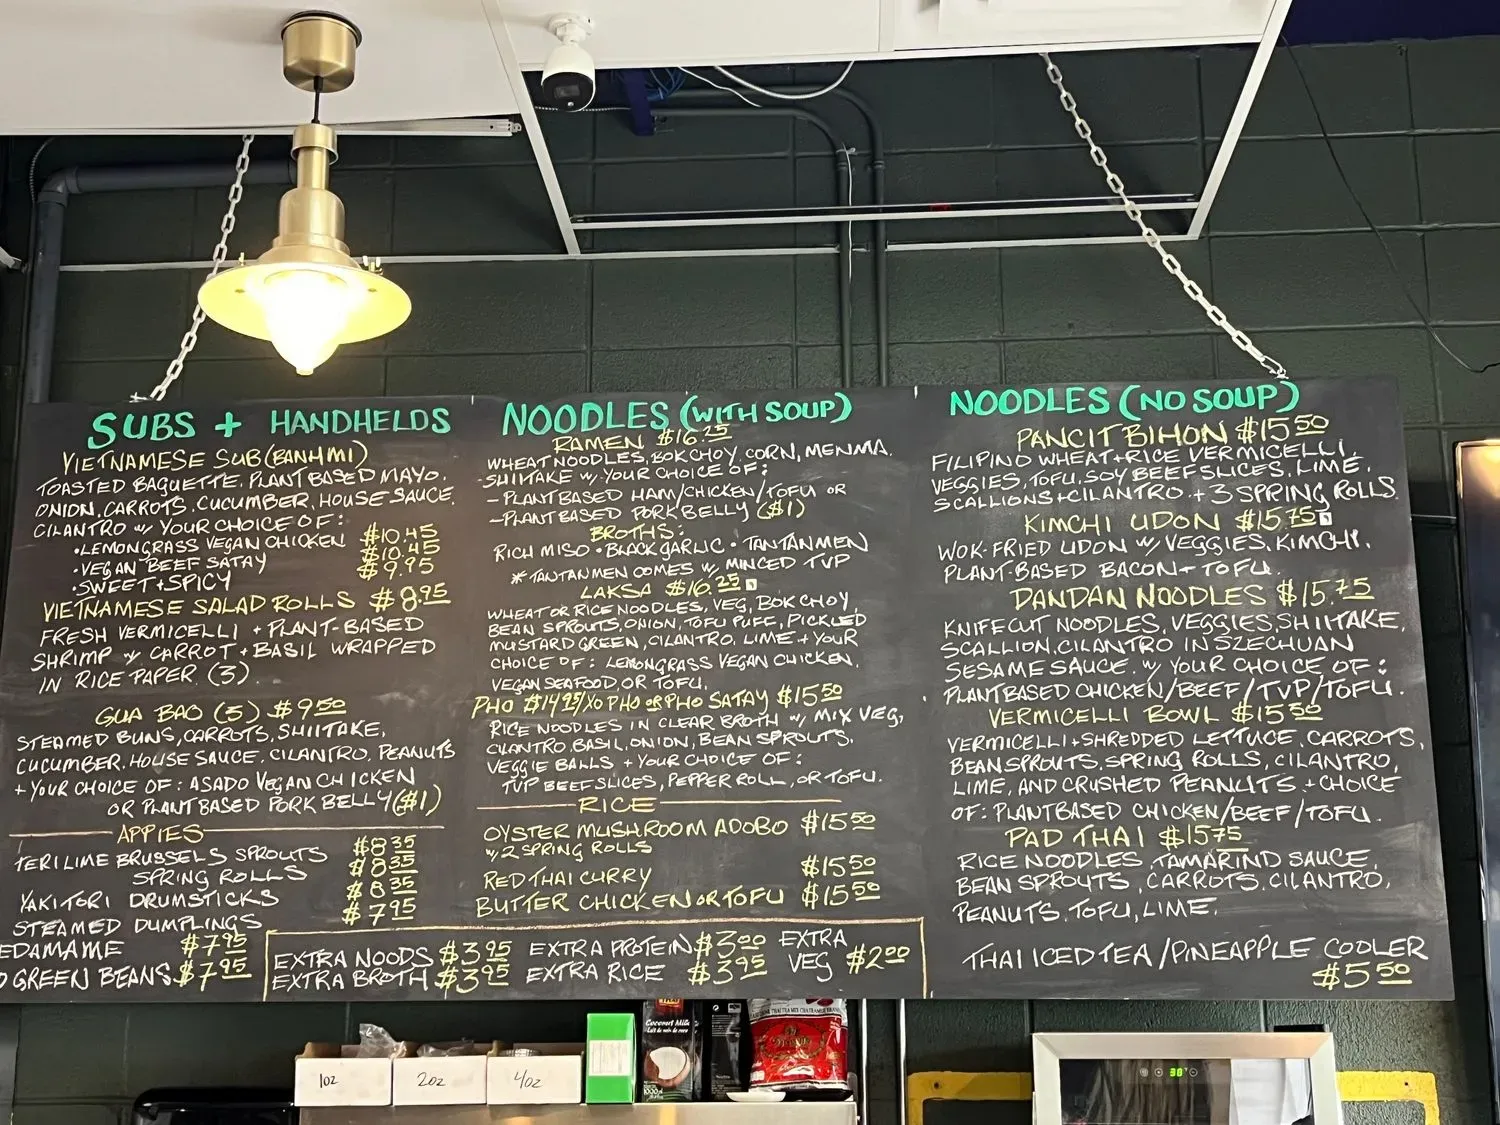 SUBS + HANDHELDS
VIETNAMESE SUB (BANH MI)
TOASTED BAGUETTE, PLANT BASED MAYO.
ONION, CARROTS, CUCUMBER, HOUSE SAUCE,
CILANTRO w/ YOUR CHOICE OF:
•LEMONGRASS VEGAN CHICKEN $10.45
•VEGAN BEEF SATAY $10.45
•SWEET+SPICY $9.95
VIETNAMESE SALAD ROLLS $8.95
FRESH VERMICELLI + PLANT-BASED
SHRIMP w/ CARROT + BASIL WRAPPED
IN RICE PAPER (3).
GUA BAO (3) $9.50
STEAMED BUNS, CARROTS, SHIITAKE,
CUCUMBER, HOUSE SAUCE, CILANTRO, PEANUTS
+ YOUR CHOICE OF: ASADO VEGAN CHICKEN
OR PLANT BASED PORK BELLY ($1)
APPIES
TERI LIME BRUSSELS SPROUTS $8.35
SPRING ROLLS $8.35
YAKITORI DRUMSTICKS $8.35
STEAMED DUMPLINGS $7.95
EDAMAME $7.95
GREEN BEANS $7.95
NOODLES (WITH SOUP)
RAMEN $16.25
WHEAT NOODLES, BOK CHOY, CORN, MENMA,
-SHIITAKE w/ YOUR CHOICE OF:
-PLANT BASED HAM/CHICKEN/TOFU OR
-PLANT BASED PORK BELLY ($1)
BROTHS:
RICH MISO • BLACK GARLIC • TANTANMEN
*TANTANMEN COMES w/ MINCED TVP
LAKSA $16.25
WHEAT OR RICE NOODLES, VEG, BOK CHOY,
BEAN SPROUTS, ONION, TOFU PUFF, PICKLED
MUSTARD GREEN, CILANTRO, LIME + YOUR
CHOICE OF: LEMONGRASS VEGAN CHICKEN,
VEGAN SEAFOOD, OR TOFU.
PHO $14.95/XO PHO OR PHO SATAY $15.50
RICE NOODLES IN CLEAR BROTH w/ MIX VEG,
CILANTRO, BASIL, ONION, BEAN SPROUTS,
VEGGIE BALLS + YOUR CHOICE OF:
TVP BEEF SLICES, PEPPER ROLL, OR TOFU.
RICE
OYSTER MUSHROOM ADOBO $15.50
w/ 2 SPRING ROLLS
RED THAI CURRY $15.50
BUTTER CHICKEN OR TOFU $15.50
EXTRA NOODS $3.95 EXTRA PROTEIN $3.00 EXTRA
EXTRA BROTH $3.95 EXTRA RICE $3.95 VEG $2.00
NOODLES (NO SOUP)
PANCIT BIHON $15.50
FILIPINO WHEAT+RICE VERMICELLI,
VEGGIES, TOFU, SOY BEEF SLICES, LIME,
SCALLIONS+CILANTRO + 3 SPRING ROLLS
KIMCHI UDON $15.75
WOK-FRIED UDON w/ VEGGIES, KIMCHI,
PLANT-BASED BACON + TOFU.
DANDAN NOODLES $15.75
KNIFE CUT NOODLES, VEGGIES, SHIITAKE,
SCALLION, CILANTRO IN SZECHUAN
SESAME SAUCE. w/ YOUR CHOICE OF:
PLANTBASED CHICKEN/BEEF/TVP/TOFU.
VERMICELLI BOWL $15.50
VERMICELLI+SHREDDED LETTUCE, CARROTS,
BEANSPROUTS, SPRING ROLLS, CILANTRO,
LIME, AND CRUSHED PEANUTS + CHOICE
OF: PLANTBASED CHICKEN/BEEF/TOFU.
PAD THAI $15.75
RICE NOODLES, TAMARIND SAUCE,
BEAN SPROUTS, CARROTS, CILANTRO,
PEANUTS, TOFU, LIME.
THAI ICED TEA/PINEAPPLE COOLER
$5.50
1oz
2oz
4oz
Coconut Milk
30°